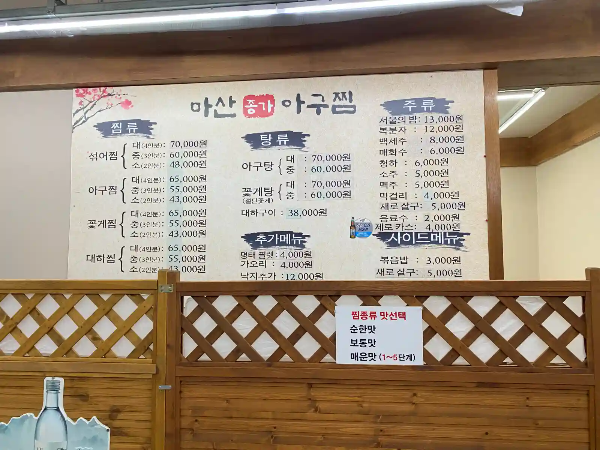 마산 종가 아구찜
찜류
섞어찜
대(4인분): 70,000원
중(3인분): 60,000원
소(2인분): 48,000원
아구찜
대(4인분): 65,000원
중(3인분): 55,000원
소(2인분): 43,000원
꽃게찜
대(4인분): 65,000원
중(3인분): 55,000원
소(2인분): 43,000원
대하찜
대(4인분): 65,000원
중(3인분): 55,000원
소(2인분): 43,000원
탕류
아구탕
대 : 70,000원
중 : 60,000원
꽃게탕
대 : 70,000원
중 : 60,000원
대하구이 : 38,000원
추가메뉴
명태 찜렛: 4,000원
가오리 : 4,000원
낙지추가 : 12,000원
주류
서울의밤: 13,000원
복분자 : 12,000원
백세주 : 8,000원
매화수 : 6,000원
청하 : 6,000원
소주 : 5,000원
맥주 : 5,000원
막걸리 : 4,000원
새로살구: 5,000원
음료수 : 2,000원
제로카스 : 4,000원
사이드메뉴
볶음밥 : 3,000원
새로살구: 5,000원
찜종류 맛선택
순한맛
보통맛
매운맛 (1~5단계)